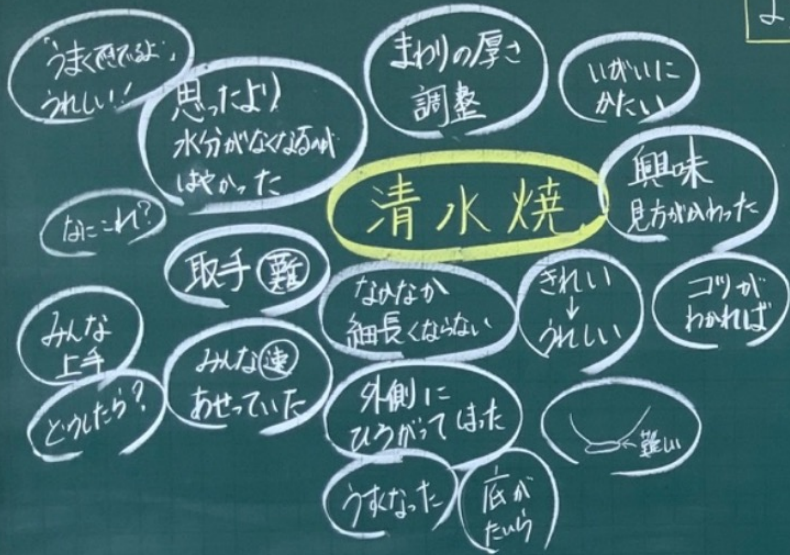 「うまくできてるよ」
うれしい！
思ったより
水分がなくなるのが
はやかった
まわりの厚さ
調整
いがいに
かたい
清水焼
興味
見方がかわった
なにこれ？
取手 難
なかなか
細長くならない
きれい
↓
うれしい
コツが
わかれば
みんな
上手
みんな 速
あせっていた
どうしたら？
外側に
ひろがってしまった
←難しい
うすくなった
底が
たいら